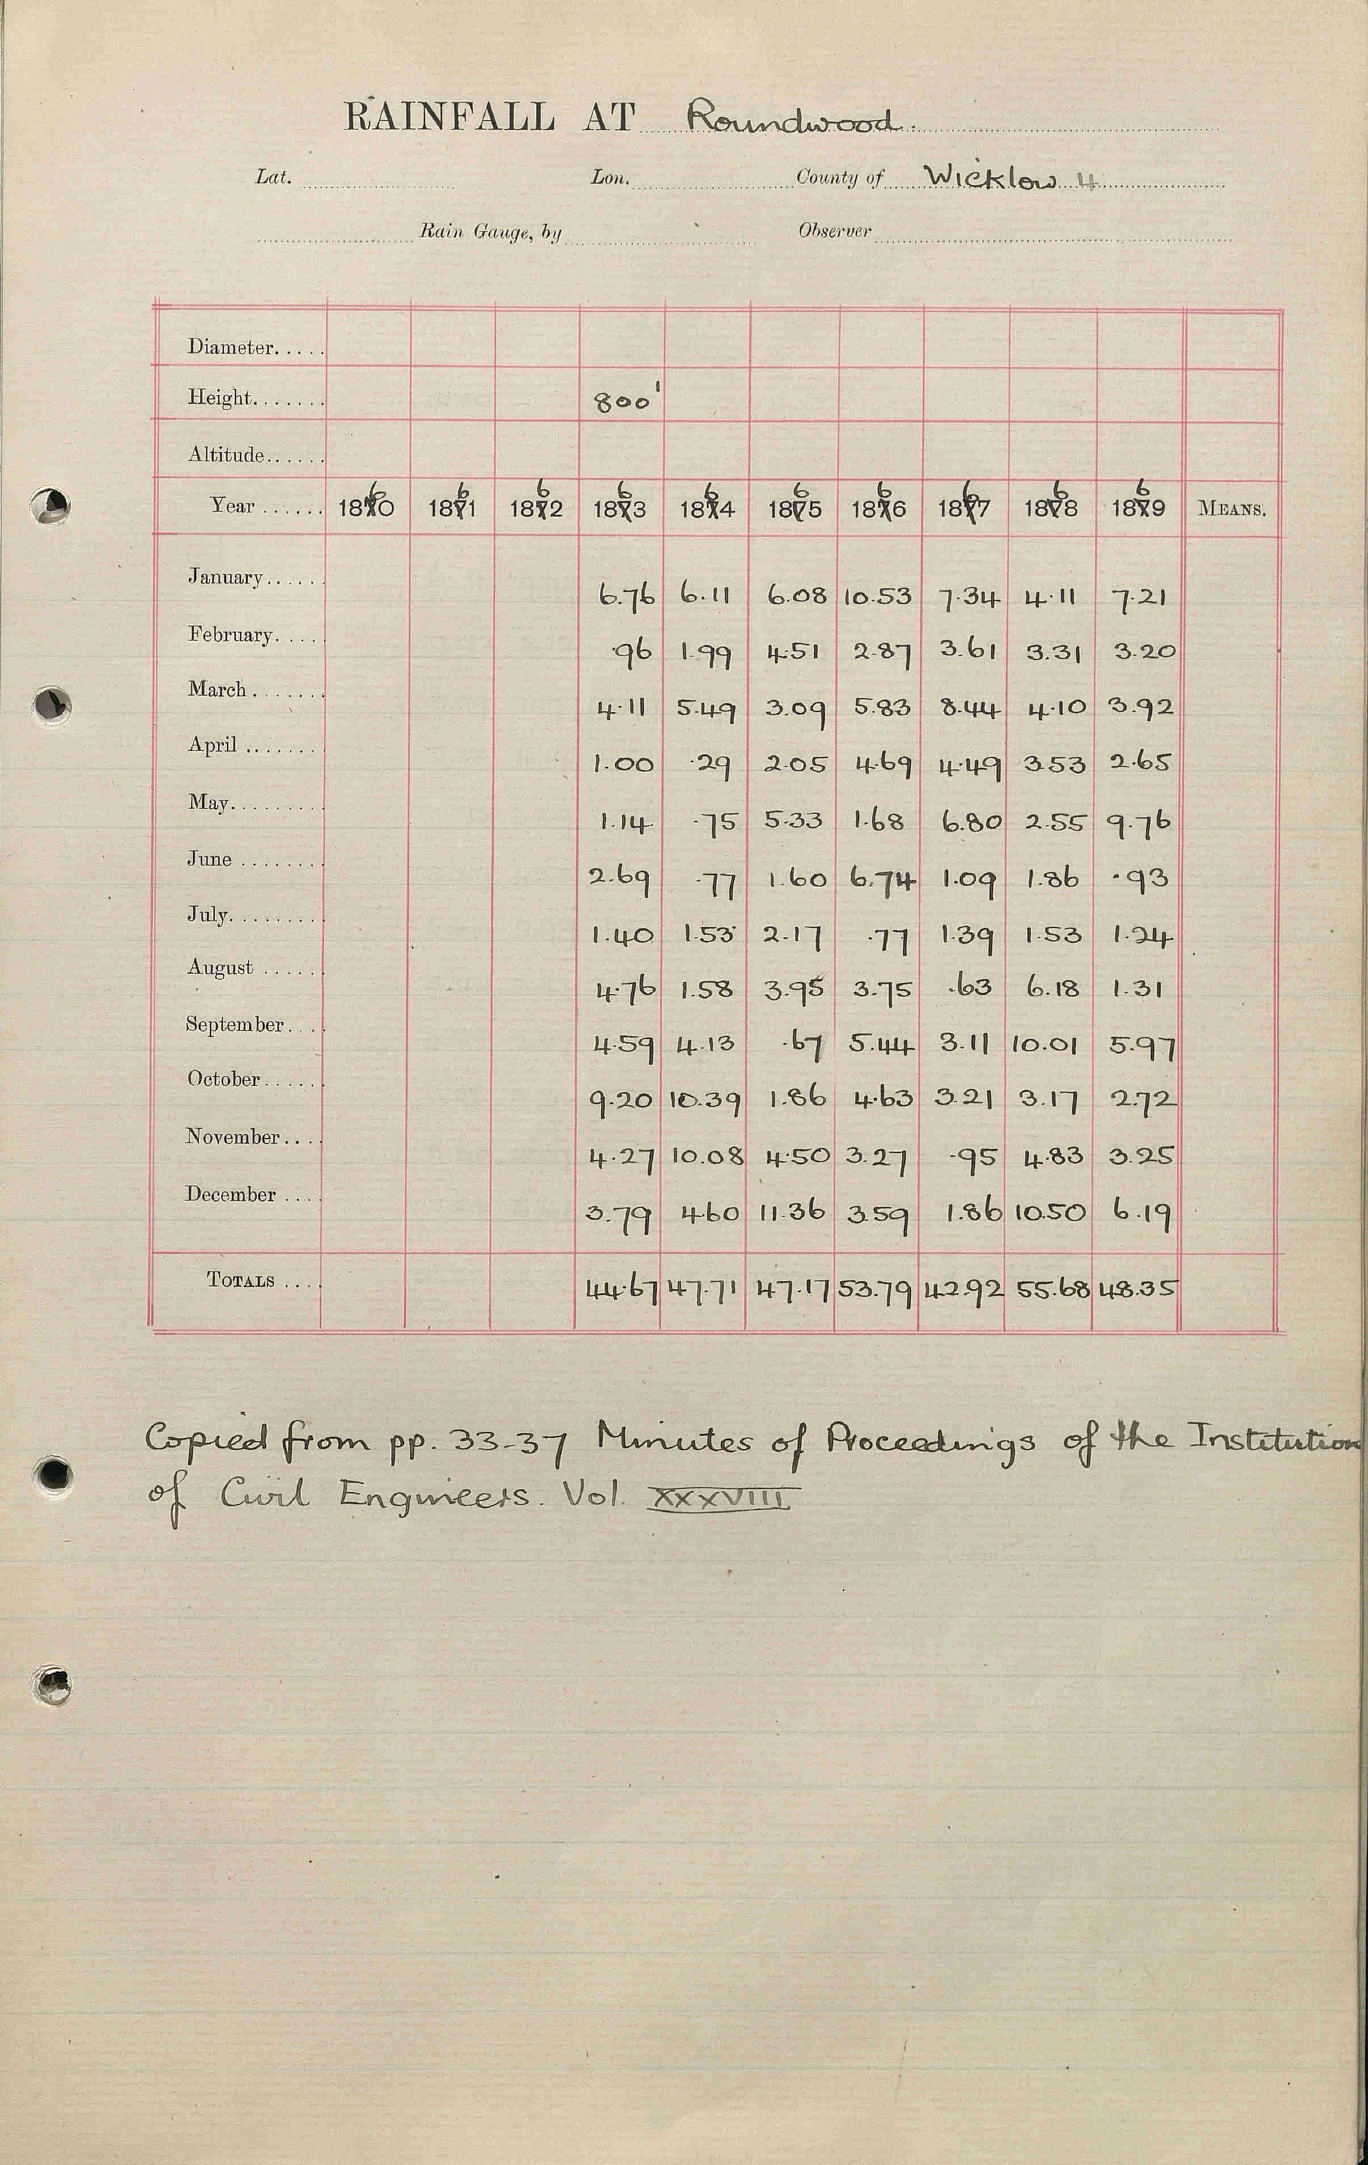 RAINFALL AT Roundwood.
Lat. Lon. County of Wicklow 4
Rain Gauge, by Observer
Diameter.....
Height....... 800'
Altitude......
Year ...... 1860 1861 1862 1863 1864 1865 1866 1867 1868 1869 MEANS.
January...... 6.76 6.11 6.08 10.53 7.34 4.11 7.21
February.... .96 1.99 4.51 2.87 3.61 3.31 3.20
March....... 4.11 5.49 3.09 5.83 8.44 4.10 3.92
April ....... 1.00 .29 2.05 4.69 4.49 3.53 2.65
May......... 1.14 .75 5.33 1.68 6.80 2.55 9.76
June ........ 2.69 .77 1.60 6.74 1.09 1.86 .93
July......... 1.40 1.53 2.17 .77 1.39 1.53 1.24
August ...... 4.76 1.58 3.95 3.75 .63 6.18 1.31
September.... 4.59 4.13 .67 5.44 3.11 10.01 5.97
October...... 9.20 10.39 1.86 4.63 3.21 3.17 2.72
November.... 4.27 10.08 4.50 3.27 .95 4.83 3.25
December .... 3.79 4.60 11.36 3.59 1.86 10.50 6.19
TOTALS .... 44.67 47.71 47.17 53.79 42.92 55.68 48.35
Copied from pp. 33-37 Minutes of Proceedings of the Institution
of Civil Engineers. Vol. XXXVIII